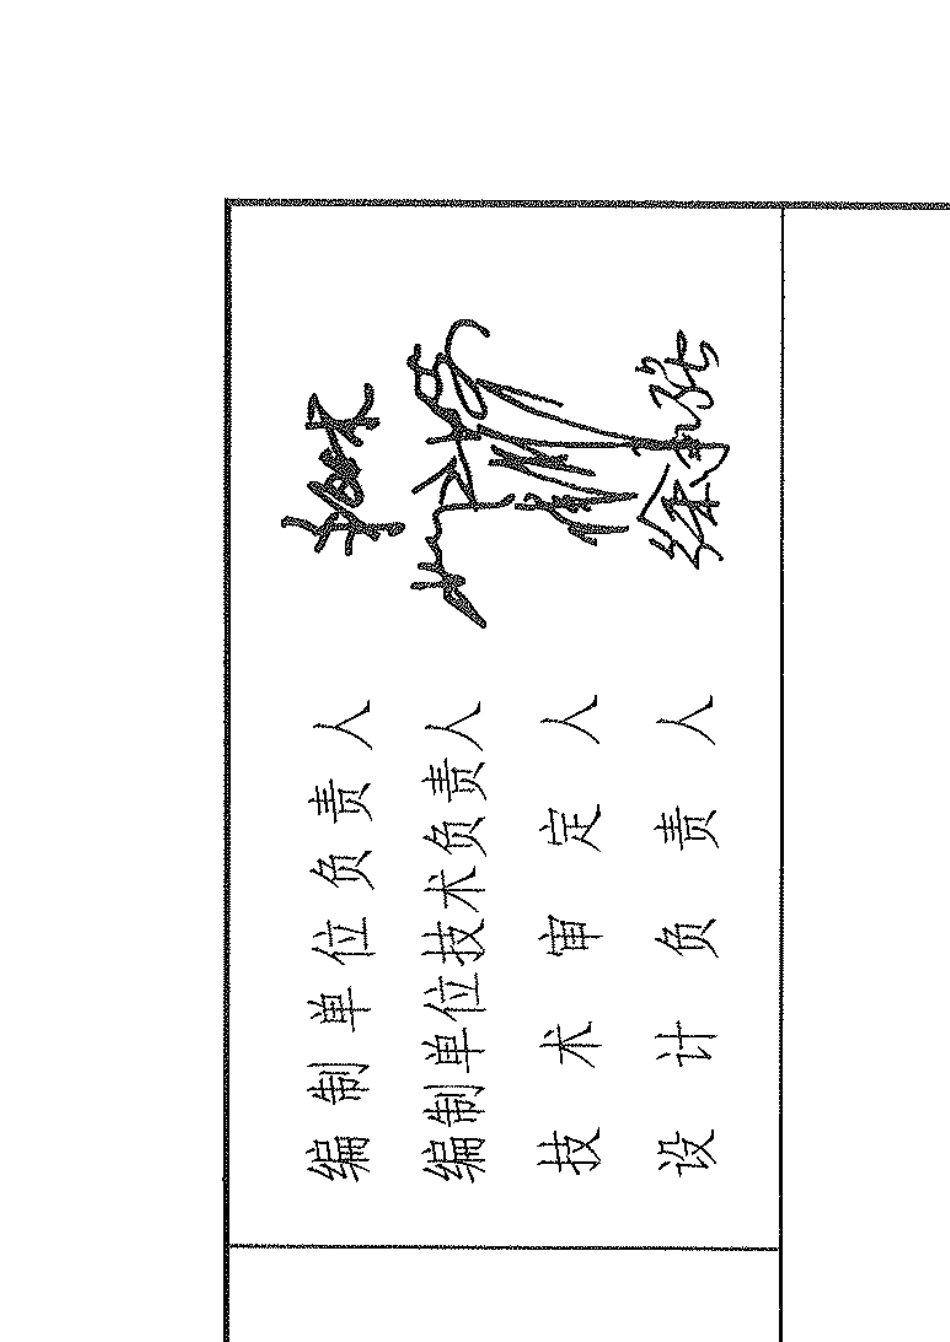 编制单位负责人
编制单位技术负责人
技术审定人
设计负责人